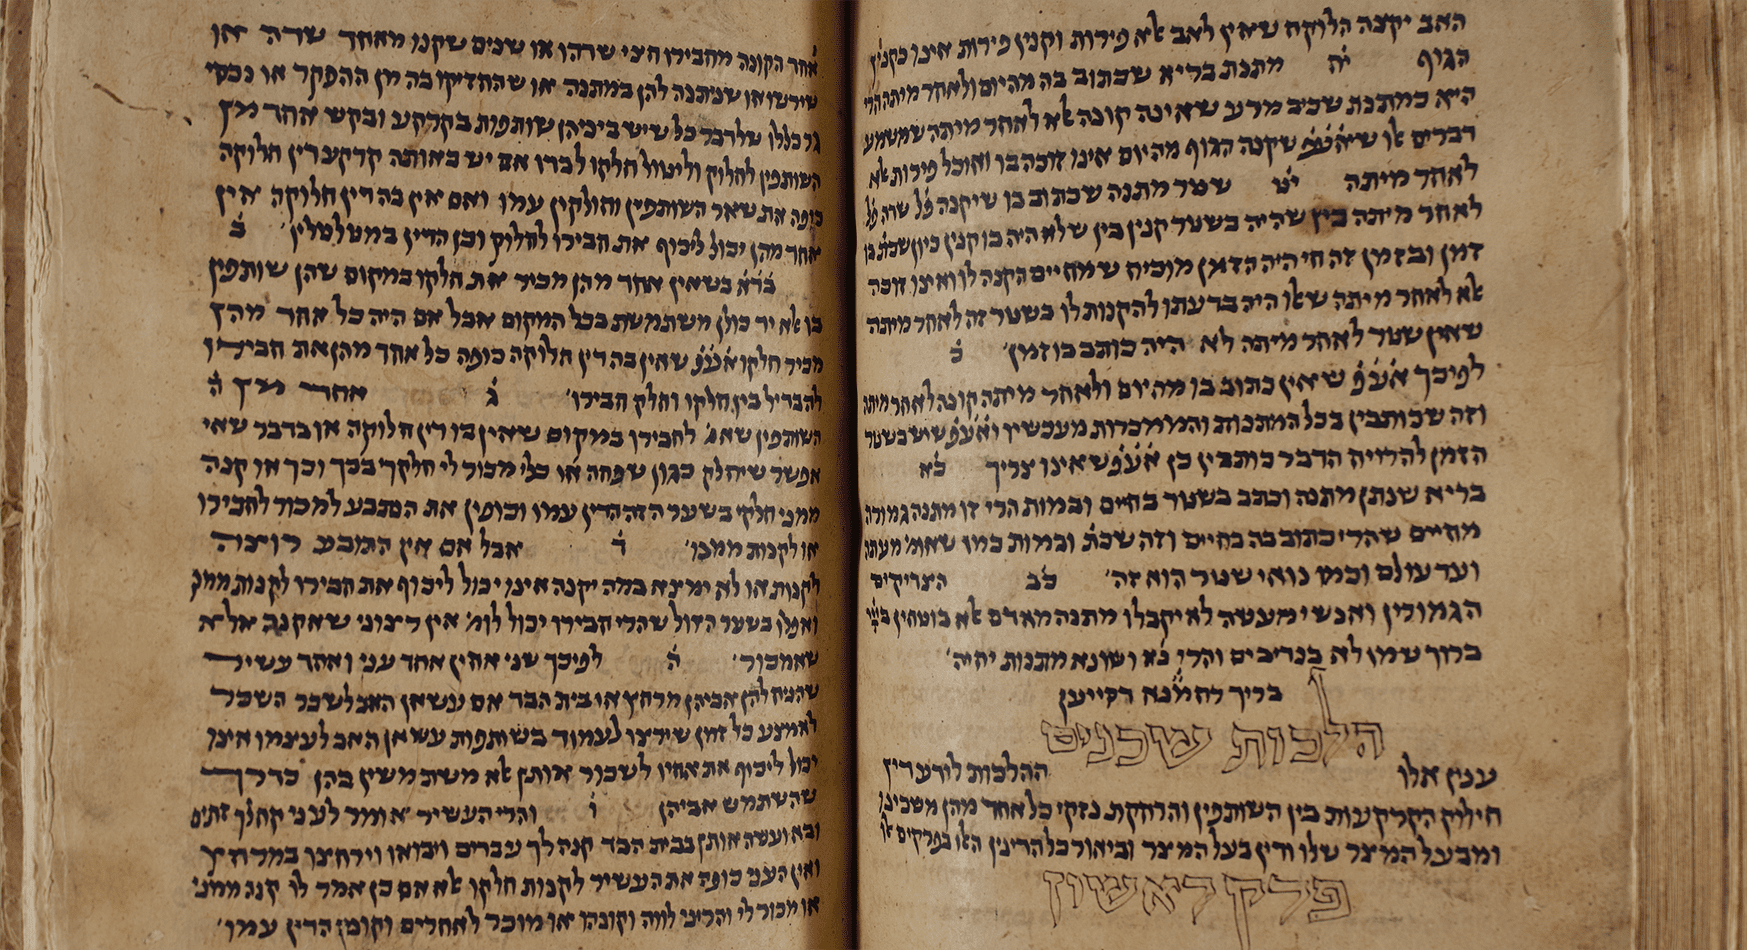 האב יקנה הלוקח שאין לאב אלא פירות וקנין פירות אינו כקנין
הגוף יח מתנת בריא שכתוב בה מהיום ולאחר מיתה הרי
היא כמתנת שכיב מרע שאינה קונה אלא לאחר מיתה שמשמע
דברים אלו שאע״פ שקנה הגוף מהיום אינו זוכה בו ואוכל פירות אלא
לאחר מיתה יט שטר מתנה שכתוב בו שיקנה פל׳ שדה פל׳
לאחר מיתה בין שהיה בשטר קנין בין שלא היה בו קנין כיון שכת׳ בו
זמן ובזמן זה חי היה הזמן מוכיח שמחיים הקנה לו ואינו זוכה
אלא לאחר מיתה שאלו היה בדעתו להקנות לו בשטר זה לאחר מיתה
שאין שטר לאחר מיתה לא היה כותב בו זמן׳ כ
לפיכך אע״פ שאין כתוב בו מהיום ולאחר מיתה קונה לאחר מיתה
וזה שכותבין בכל המתנות והממכרות מעכשיו ואע״פ שיש בשטר
הזמן להרויח הדבר כותבין כן אע״פ שאינו צריך כא
בריא שנתן מתנה וכתב בשטר בחיים ובמות הרי זו מתנה גמורה
מחיים שהרי כתוב בה בחיים וזה שכת׳ ובמות כמו שאומ׳ מעתה
ועד עולם וכמו נואי שטר הוא זה׳ כב הצדיקים
הגמורין ואנשי מעשה לא יקבלו מתנה מאדם אלא בוטחין ביי׳
ברוך שמו לא בנדיבים והרי נא׳ ושונא מתנות יחיה׳
בריך רחמנא דסייען
הלכות שכנים
ענין אלו ההלכות לידע דין
חילוק הקרקעות בין השותפין והרחקת נזקי כל אחד מהן משכינו
ומבעל המיצר שלו ודין בעל המיצר וביאור כל הדינין האלו בפרקים אלו
פרק ראשון
אחד הקונה מחבירו חצי שדהו או שנים שקנו מאחד שדה או
שירשו או שניתנה להן במתנה או שהחזיקו בה מן ההפקר או נכסי
גר כללו שלדבר כל שיש ביניהן שותפות בקרקע ובקש אחד מן
השותפין לחלוק וליטול חלקו לבדו אם יש באותה קרקע דין חלוקה
כופה את שאר השותפין וחולקין עמו ואם אין בה דין חלוקה אין
אחד מהן יכול לכוף את חבירו לחלוק וכן הדין במטלטלין׳ ב
בד״א בשאין אחד מהן מכיר את חלקו במקום שהן שותפין
בו אלא יד כולן משתמשת בכל המקום אבל אם היה כל אחד מהן
מכיר חלקו אע״פ שאין בה דין חלוקה כופה כל אחד מהן את חבירו
להבדיל בין חלקו וחלק חבירו׳ ג אחד מן ה
השותפין שאמ׳ לחבירו במקום שאין בו דין חלוקה או בדבר שאי
אפשר שיחלק כגון שפחה או כלי מכור לי חלקך בכך וכך או קנה
ממני חלקי בשער הזה הדין עמו וכופין את הנתבע למכור לחבירו
או לקנות ממנו׳ ד אבל אם אין התובע רוצה
לקנות או לא ימצא במה יקנה אינו יכול לכוף את חבירו לקנות ממנו
ואפלו בשער הזול שהרי חבירו יכול לומ׳ אין רצוני שאקנה אלא
שאמכור׳ ה לפיכך שני אחין אחד עני ואחד עשיר
שהניח להן אביהן מרחץ או בית הבד אם עשאן האב לשכר השכר
לאמצע כל זמן שירצו לעמוד בשותפות עשאן האב לעצמו אינו
יכול לכוף את אחיו לשכור אותן אלא משתמשין בהן כדרך
שהשתמש אביהן ו והרי העשיר אומר לעני קח לך זתים
ובא ועשה אותן בבית הבד קנה לך עבדים ויבואו וירחצו במרחץ
ואין העני כופה את העשיר לקנות חלקו אלא אם כן אמר לו קנה ממני
או מכור לי והריני לווה וקונה או מוכר לאחרים וקונין הדין עמו׳